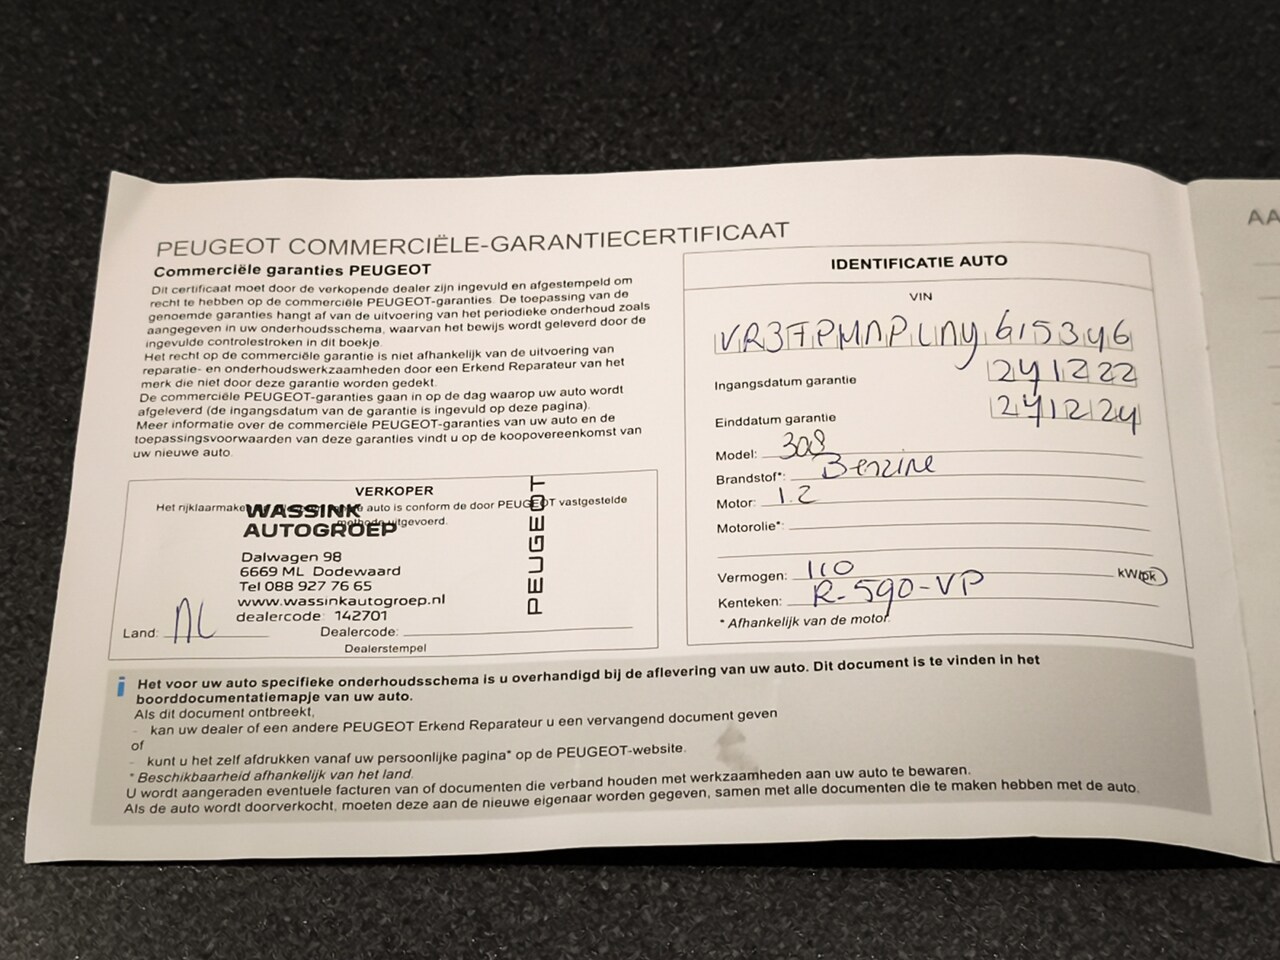 PEUGEOT COMMERCIËLE-GARANTIECERTIFICAAT
Commerciële garanties PEUGEOT
Dit certificaat moet door de verkopende dealer zijn ingevuld en afgestempeld om
recht te hebben op de commerciële PEUGEOT-garanties. De toepassing van de
genoemde garanties hangt af van de uitvoering van het periodieke onderhoud zoals
aangegeven in uw onderhoudsschema, waarvan het bewijs wordt geleverd door de
ingevulde controlestroken in dit boekje.
Het recht op de commerciële garantie is niet afhankelijk van de uitvoering van
reparatie- en onderhoudswerkzaamheden door een Erkend Reparateur van het
merk die niet door deze garantie worden gedekt.
De commerciële PEUGEOT-garanties gaan in op de dag waarop uw auto wordt
afgeleverd (de ingangsdatum van de garantie is ingevuld op deze pagina).
Meer informatie over de commerciële PEUGEOT-garanties van uw auto en de
toepassingsvoorwaarden van deze garanties vindt u op de koopovereenkomst van
uw nieuwe auto.
VERKOPER
Het rijklaarmaken auto is conform de door PEUGEOT vastgestelde
methode uitgevoerd.
WASSINK
AUTOGROEP
Dalwagen 98
6669 ML Dodewaard
Tel 088 927 76 65
www.wassinkautogroep.nl
dealercode: 142701
PEUGEOT
Land: NL Dealercode:
Dealerstempel
IDENTIFICATIE AUTO
VIN
VR3FPMNPLNY615346
Ingangsdatum garantie 241222
Einddatum garantie 241224
Model: 308
Brandstof*: Benzine
Motor: 1.2
Motorolie*:
Vermogen: 110 kW/pk
Kenteken: R-590-VP
* Afhankelijk van de motor.
i Het voor uw auto specifieke onderhoudsschema is u overhandigd bij de aflevering van uw auto. Dit document is te vinden in het
boorddocumentatiemapje van uw auto.
Als dit document ontbreekt,
- kan uw dealer of een andere PEUGEOT Erkend Reparateur u een vervangend document geven
of
- kunt u het zelf afdrukken vanaf uw persoonlijke pagina* op de PEUGEOT-website.
* Beschikbaarheid afhankelijk van het land.
U wordt aangeraden eventuele facturen van of documenten die verband houden met werkzaamheden aan uw auto te bewaren.
Als de auto wordt doorverkocht, moeten deze aan de nieuwe eigenaar worden gegeven, samen met alle documenten die te maken hebben met de auto.